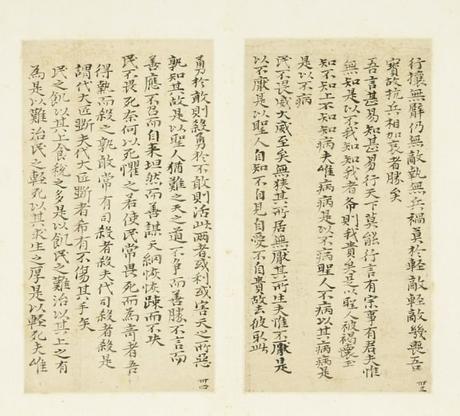 行攘無臂仍無敵執無兵禍莫於輕敵輕敵幾喪吾
寶故抗兵相加哀者勝矣
吾言甚易知甚易行天下莫能行言有宗事有君夫惟
無知是以不我知知我者希則我貴矣是以聖人被褐懷玉
知不知上不知知病夫唯病病是以不病聖人不病以其病病是
是以不病
民不畏威大威至矣無狹其所居無厭其所生夫惟不厭是
以不厭是以聖人自知不自見自愛不自貴故去彼取此
勇於敢則殺勇於不敢則活此兩者或利或害天之所惡
孰知其故是以聖人猶難之天之道不争而善勝不言而
善應不召而自来坦然而善謀天網恢恢疎而不失
民不畏死奈何以死懼之若使民常畏死而為奇者吾
得執而殺之孰敢常有司殺者殺夫代司殺者殺是
謂代大匠斲夫代大匠斲者希有不傷其手矣
民之飢以其上食稅之多是以飢民之難治以其上之有
為是以難治民之輕死以其求生之厚是以輕死夫唯